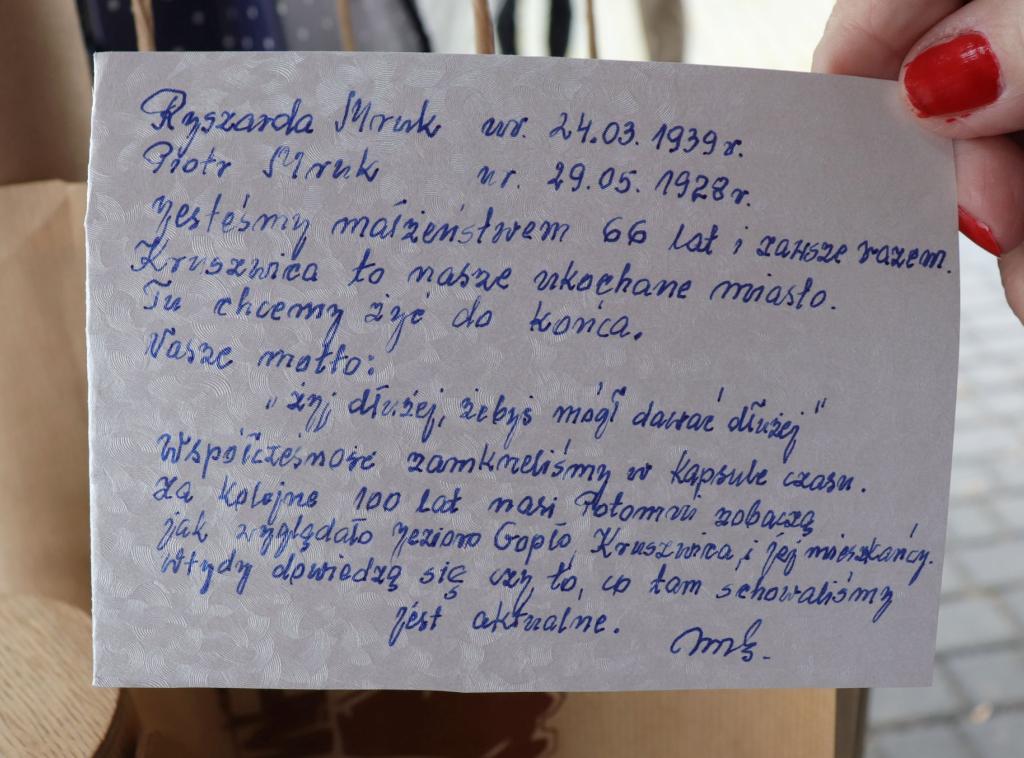 Ryszarda Mruk ur. 24.03.1939r.
Piotr Mruk ur. 29.05.1928r.
Jesteśmy małżeństwem 66 lat i zawsze razem.
Kruszwica to nasze ukochane miasto.
Tu chcemy żyć do końca.
Nasze motto:
"żyj dłużej, żebyś mógł dawać dłużej"
Współczesność zamkneliśmy w kapsule czasu.
Za kolejne 100 lat nasi Potomni zobaczą
jak wyglądało Jezioro Gopło, Kruszwica, i jej mieszkańcy.
Wtydy dowiedzą się czy to, co tam schowaliśmy
jest aktualne.